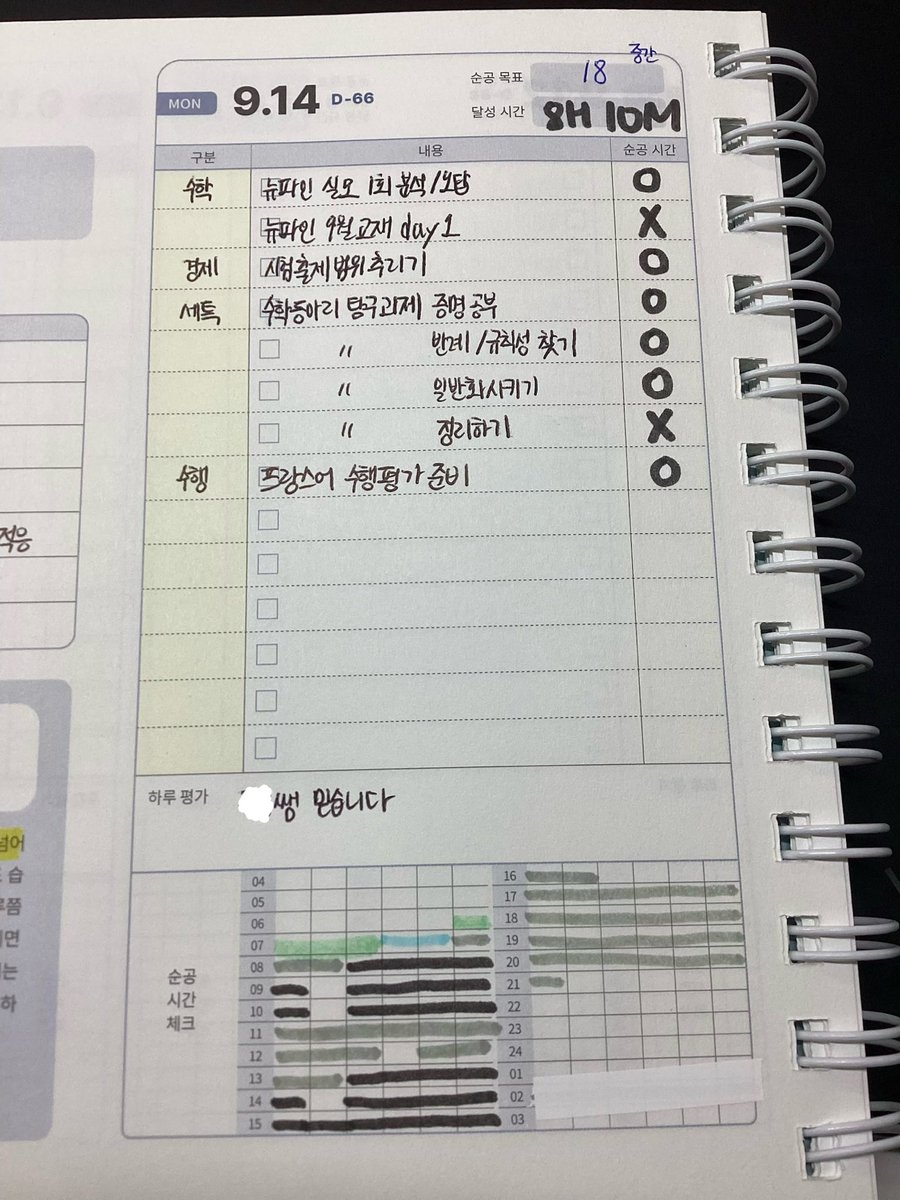 중간
순공 목표 18
MON 9.14 D-66
달성 시간 8H 10M
구분 내용 순공 시간
수학 뉴파인 실모 1회 분석/오답 O
뉴파인 9월교재 day 1 X
경제 시험출제범위 추리기 O
세특 수학동아리 탐구과제 증명 공부 O
〃 반례/규칙성 찾기 O
〃 일반화시키기 O
〃 정리하기 X
수행 프랑스어 수행평가 준비 O
하루 평가 쌤 믿습니다
순공
시간
체크
04
05
06
07
08
09
10
11
12
13
14
15
16
17
18
19
20
21
22
23
24
01
02
03
적응
넘어
습
루쯤
이면
는
하